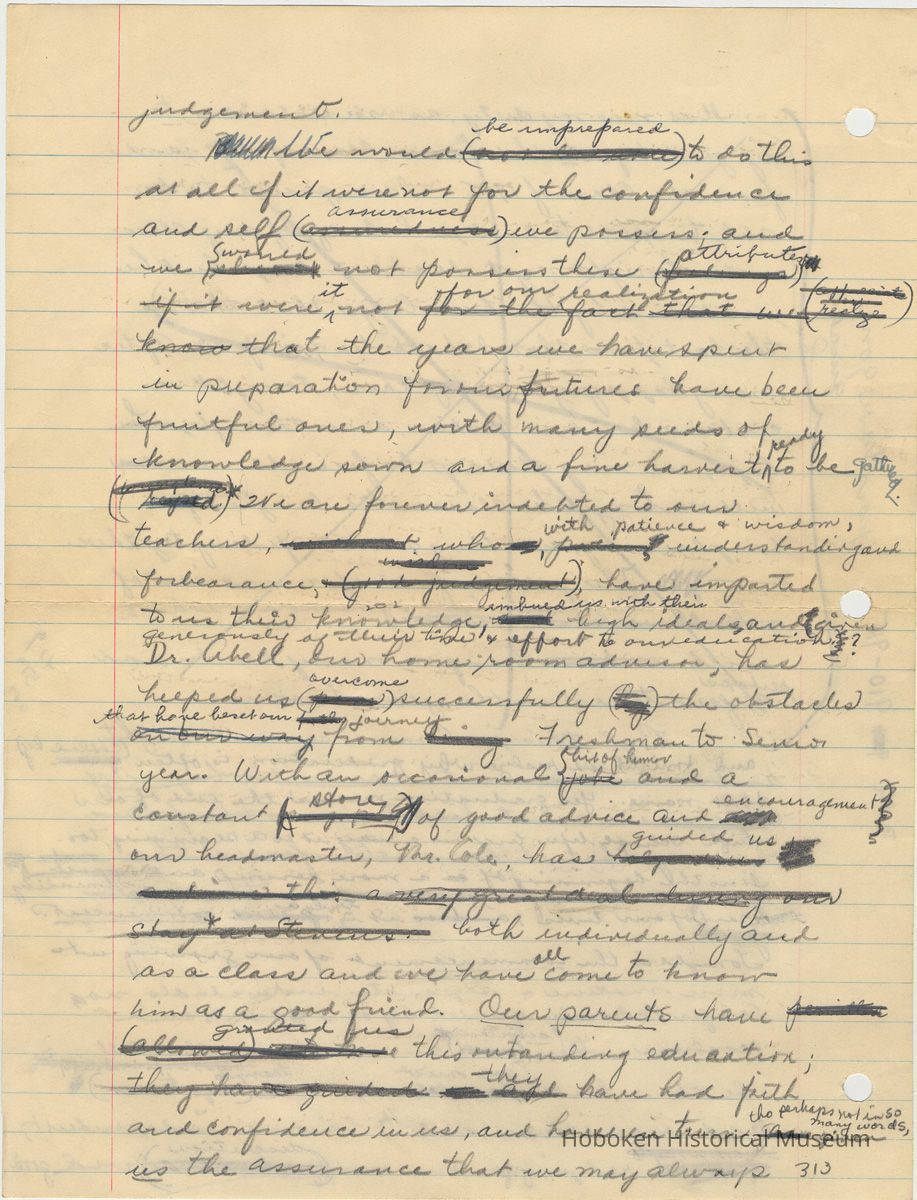 judgement.
be unprepared
We would ( ) to do this
at all if it were not for the confidence
assurance
and self (assuredness) we possess; and
would attributes
we not possess these ( )
it for our realization
if it were not for the fact that we (realize)
know that the years we have spent
in preparation for our futures have been
fruitful ones, with many seeds of
ready
knowledge sown and a fine harvest to be gathered.
(reaped)* We are forever indebted to our
with patience & wisdom,
teachers, who, understanding and
wisdom
forbearance, (good judgement), have imparted
imbued us with their
to us their knowledge, high ideals, and given
generously of their time & effort to our education. ?
Dr. Abell, our home room advisor, has
overcome
helped us ( ) successfully (by) the obstacles
that have beset our journey
on our way from Freshman to Senior
bit of humor
year. With an occasional joke and a
store encouragement
constant ( ) of good advice and
guided us
our headmaster, Mr. Cole, has
this a very great deal during our
stay* at Stevens. both individually and
all
as a class and we have come to know
him as a good friend. Our parents have
granted us
(allowed) this outstanding education;
they
they have guided and have had faith
tho perhaps not in so
many words,
and confidence in us, and have in turn given
us the assurance that we may always 313
Hoboken Historical Museum